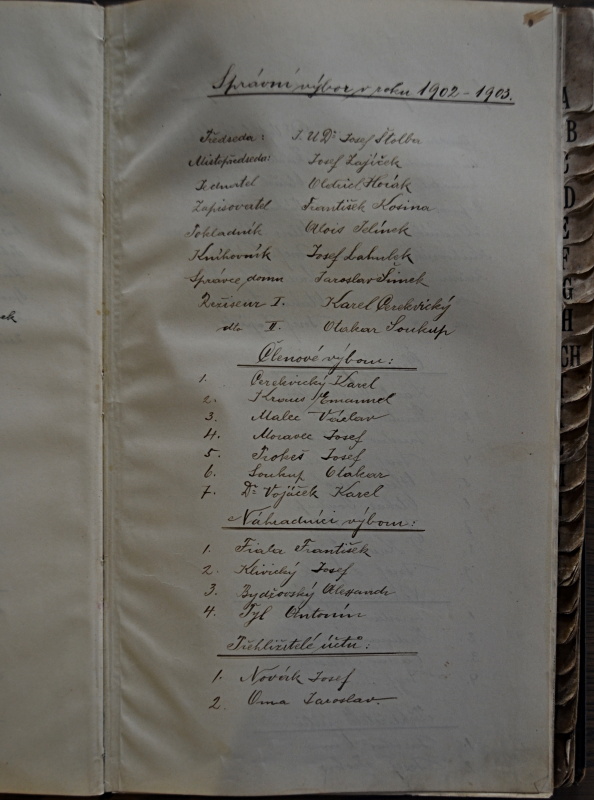 Správní výbor v roku 1902-1903.
Předseda: J.U.Dr Josef Štolba
Místopředseda: Josef Zajíček
Jednatel Oldřich Horák
Zapisovatel František Kosina
Pokladník Alois Jelínek
Knihovník Josef
Správce domu Jaroslav Šimek
Režiseur I. Karel Perekvický
dto II. Otakar Soukup
Členové výboru:
1. Perekvický Karel
2. Kraus Emanuel
3. Malec Václav
4. Moravec Josef
5. Prokeš Josef
6. Soukup Otakar
7. Dr Vojáček Karel
Náhradníci výboru:
1. Fiala František
2. Klivický Josef
3. Bydžovský Alexandr
4. Tyl Antonín
Přehlížitelé účtů:
1. Novák Josef
2. Oma Jaroslav.
A
B
C
D
E
F
G
H
CH